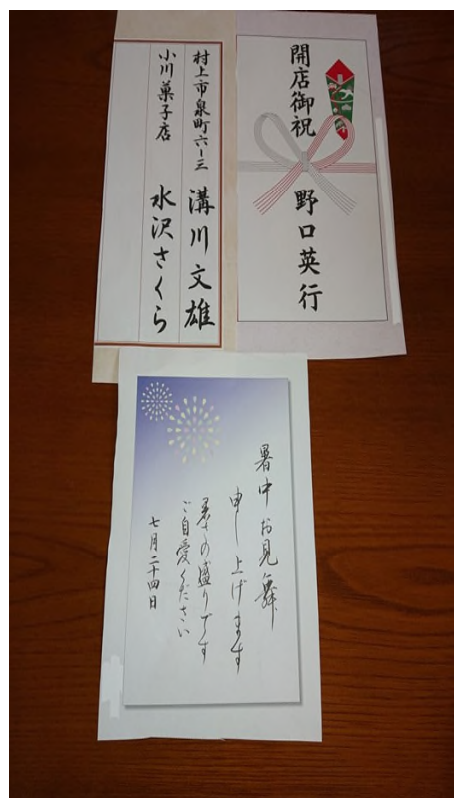 開店御祝
野口英行
村上市泉町六ー三
溝川文雄
小川菓子店
水沢さくら
暑中お見舞
申し上げます
暑さの盛りです
ご自愛ください
七月二十四日